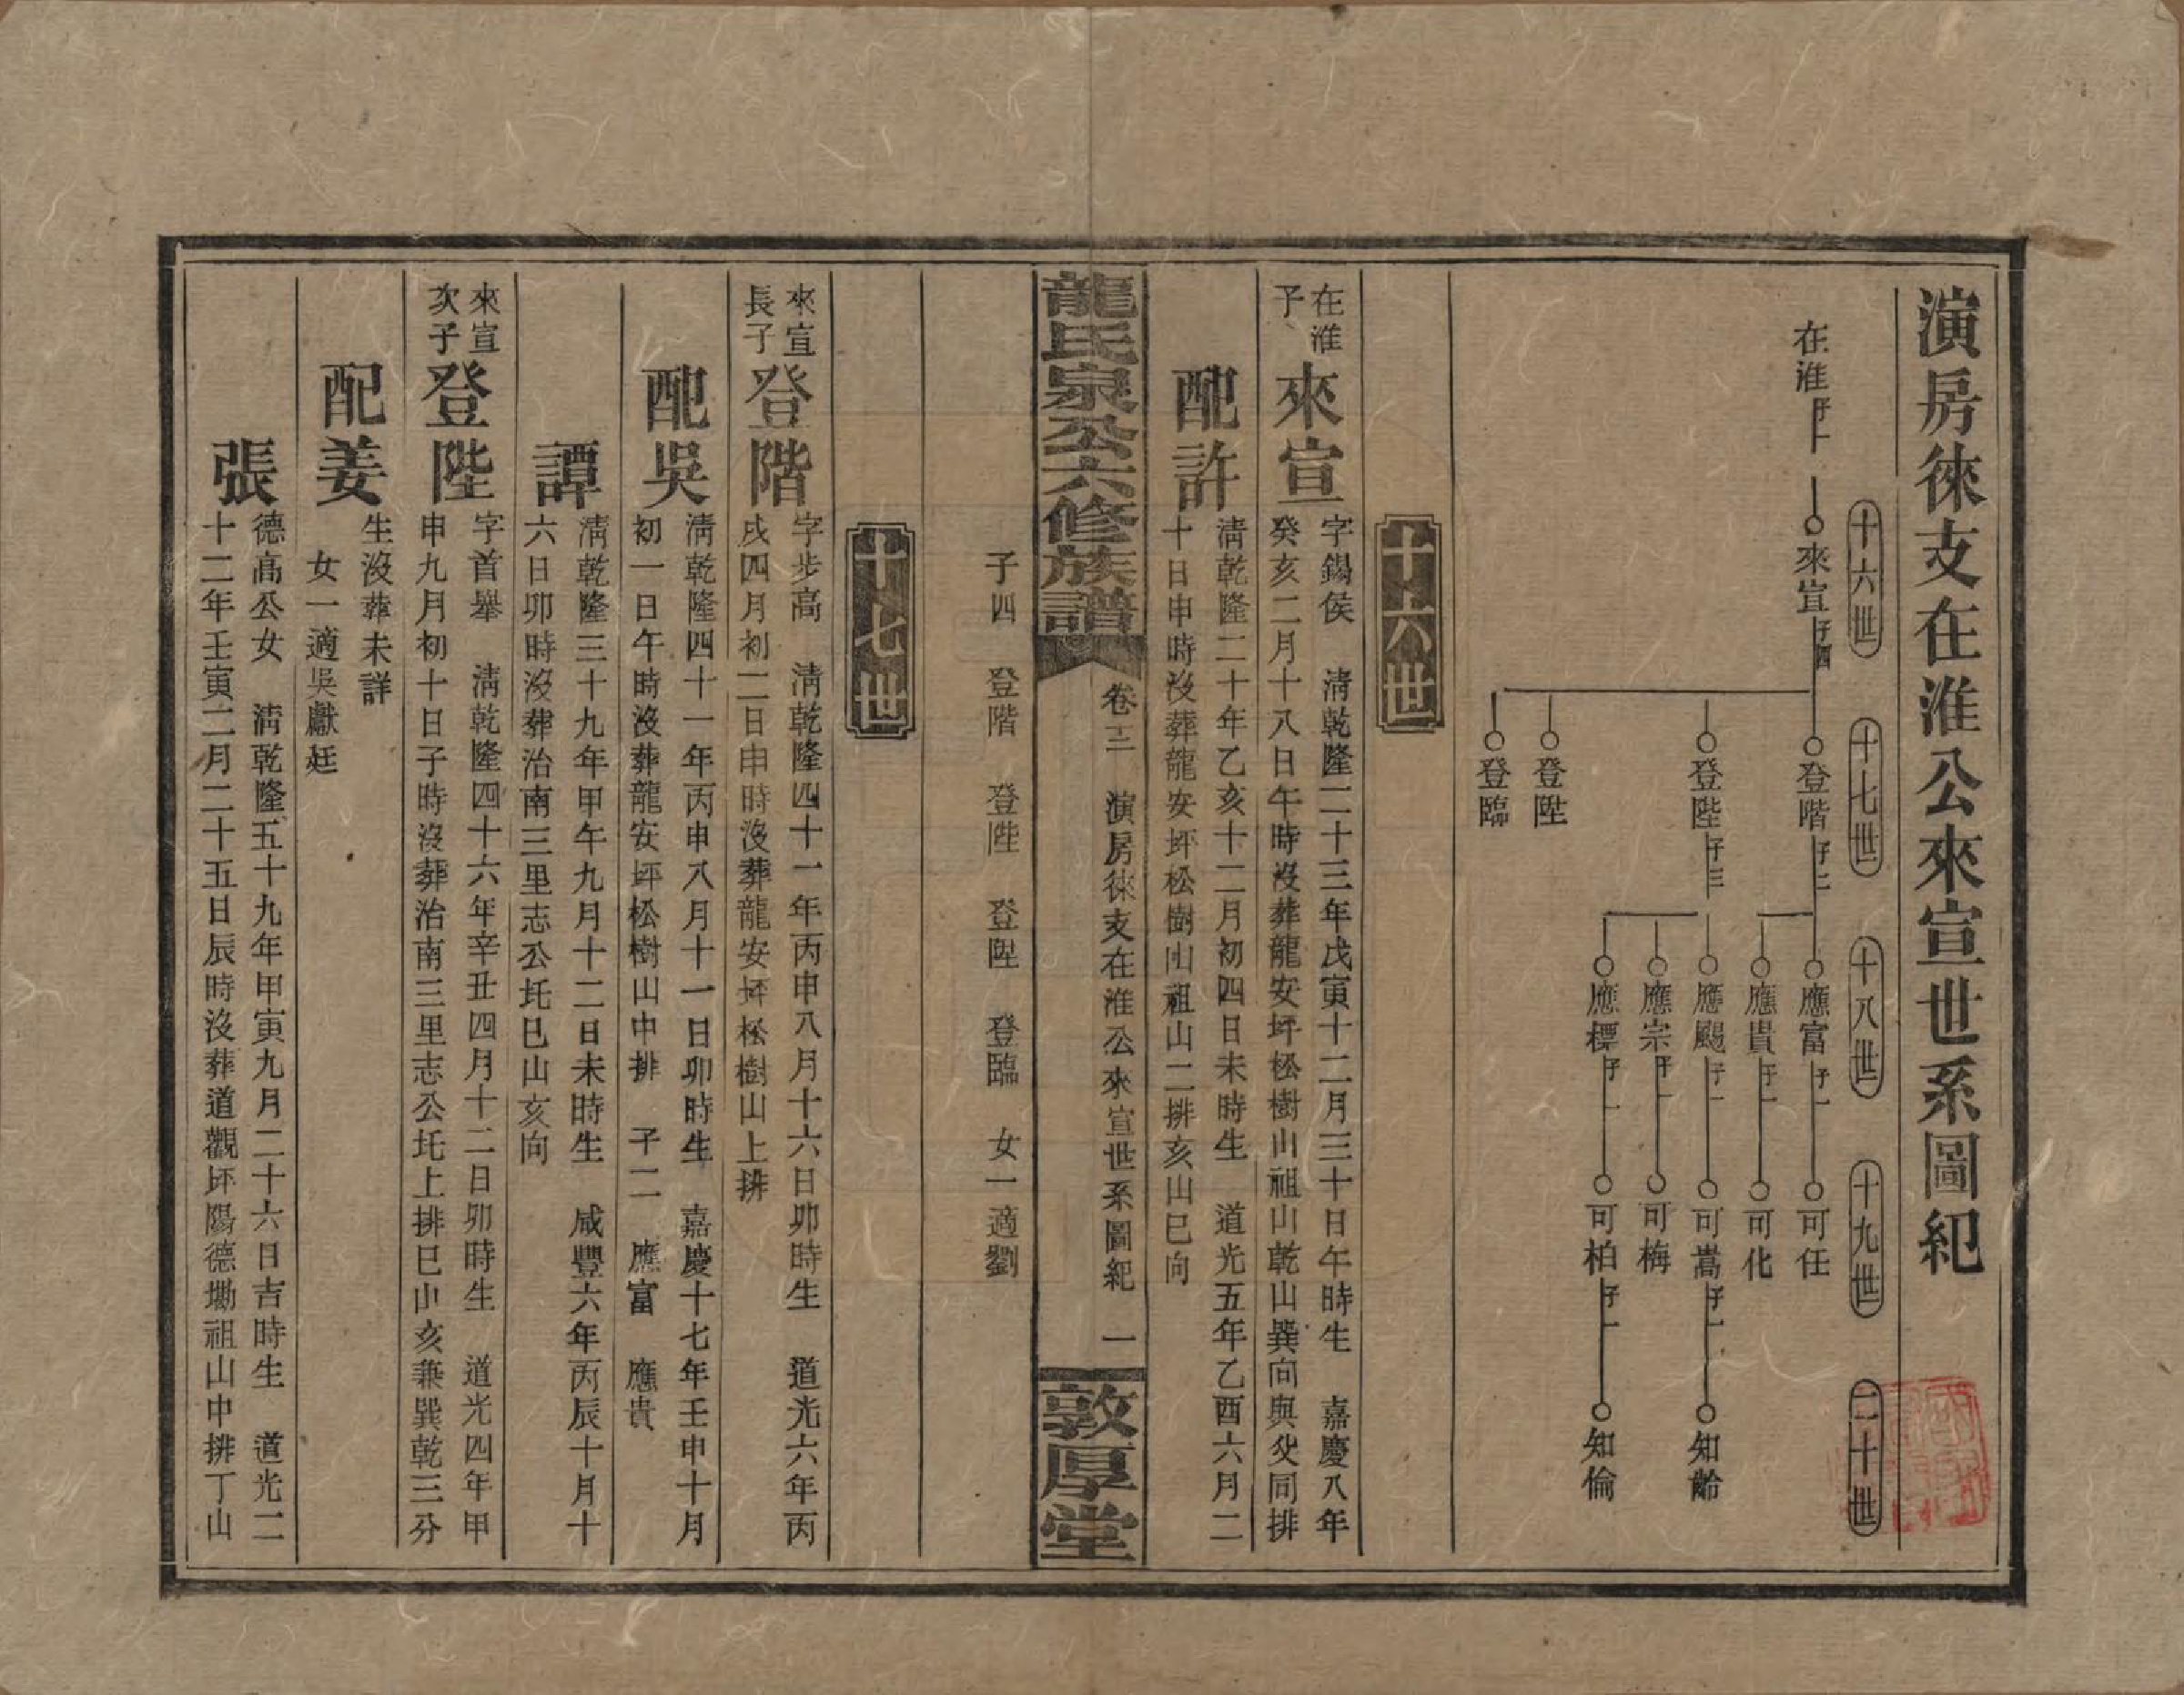 演房徠支在淮公來宣世系圖紀
十六世
十七世
十八世
十九世
二十世
在淮子一
來宣子四
登階子二
應富子一
可任
應貴子一
可化
登陛子三
應颺子一
可嵩子一
知齡
應宗子一
可梅
應標子一
可柏子一
知倫
登陞
登臨
十六世
在淮
子
來宣
字錫侯 淸乾隆二十三年戊寅十二月三十日午時生 嘉慶八年
癸亥二月十八日午時沒葬龍安坪松樹山祖山乾山巽向與父同排
配許
淸乾隆二十年乙亥十二月初四日未時生 道光五年乙酉六月二
十日申時沒葬龍安坪松樹山祖山二排亥山巳向
龍氏泉公六修族譜
卷三 演房徠支在淮公來宣世系圖紀 一
敦厚堂
子四 登階 登陛 登陞 登臨 女一適劉
十七世
來宣
長子
登階
字步高 淸乾隆四十一年丙申八月十六日卯時生 道光六年丙
戌四月初二日申時沒葬龍安坪松樹山上排
配吳
淸乾隆四十一年丙申八月十一日卯時生 嘉慶十七年壬申十月
初一日午時沒葬龍安坪松樹山中排 子二 應富 應貴
譚
淸乾隆三十九年甲午九月十二日未時生 咸豐六年丙辰十月十
六日卯時沒葬治南三里志公圫巳山亥向
來宣
次子
登陛
字首舉 淸乾隆四十六年辛丑四月十二日卯時生 道光四年甲
申九月初十日子時沒葬治南三里志公圫上排巳山亥兼巽乾三分
配姜
生沒葬未詳
女一適吳獻廷
張
德高公女 淸乾隆五十九年甲寅九月二十六日吉時生 道光二
十二年壬寅二月二十五日辰時沒葬道觀坏陽德塝祖山中排丁山